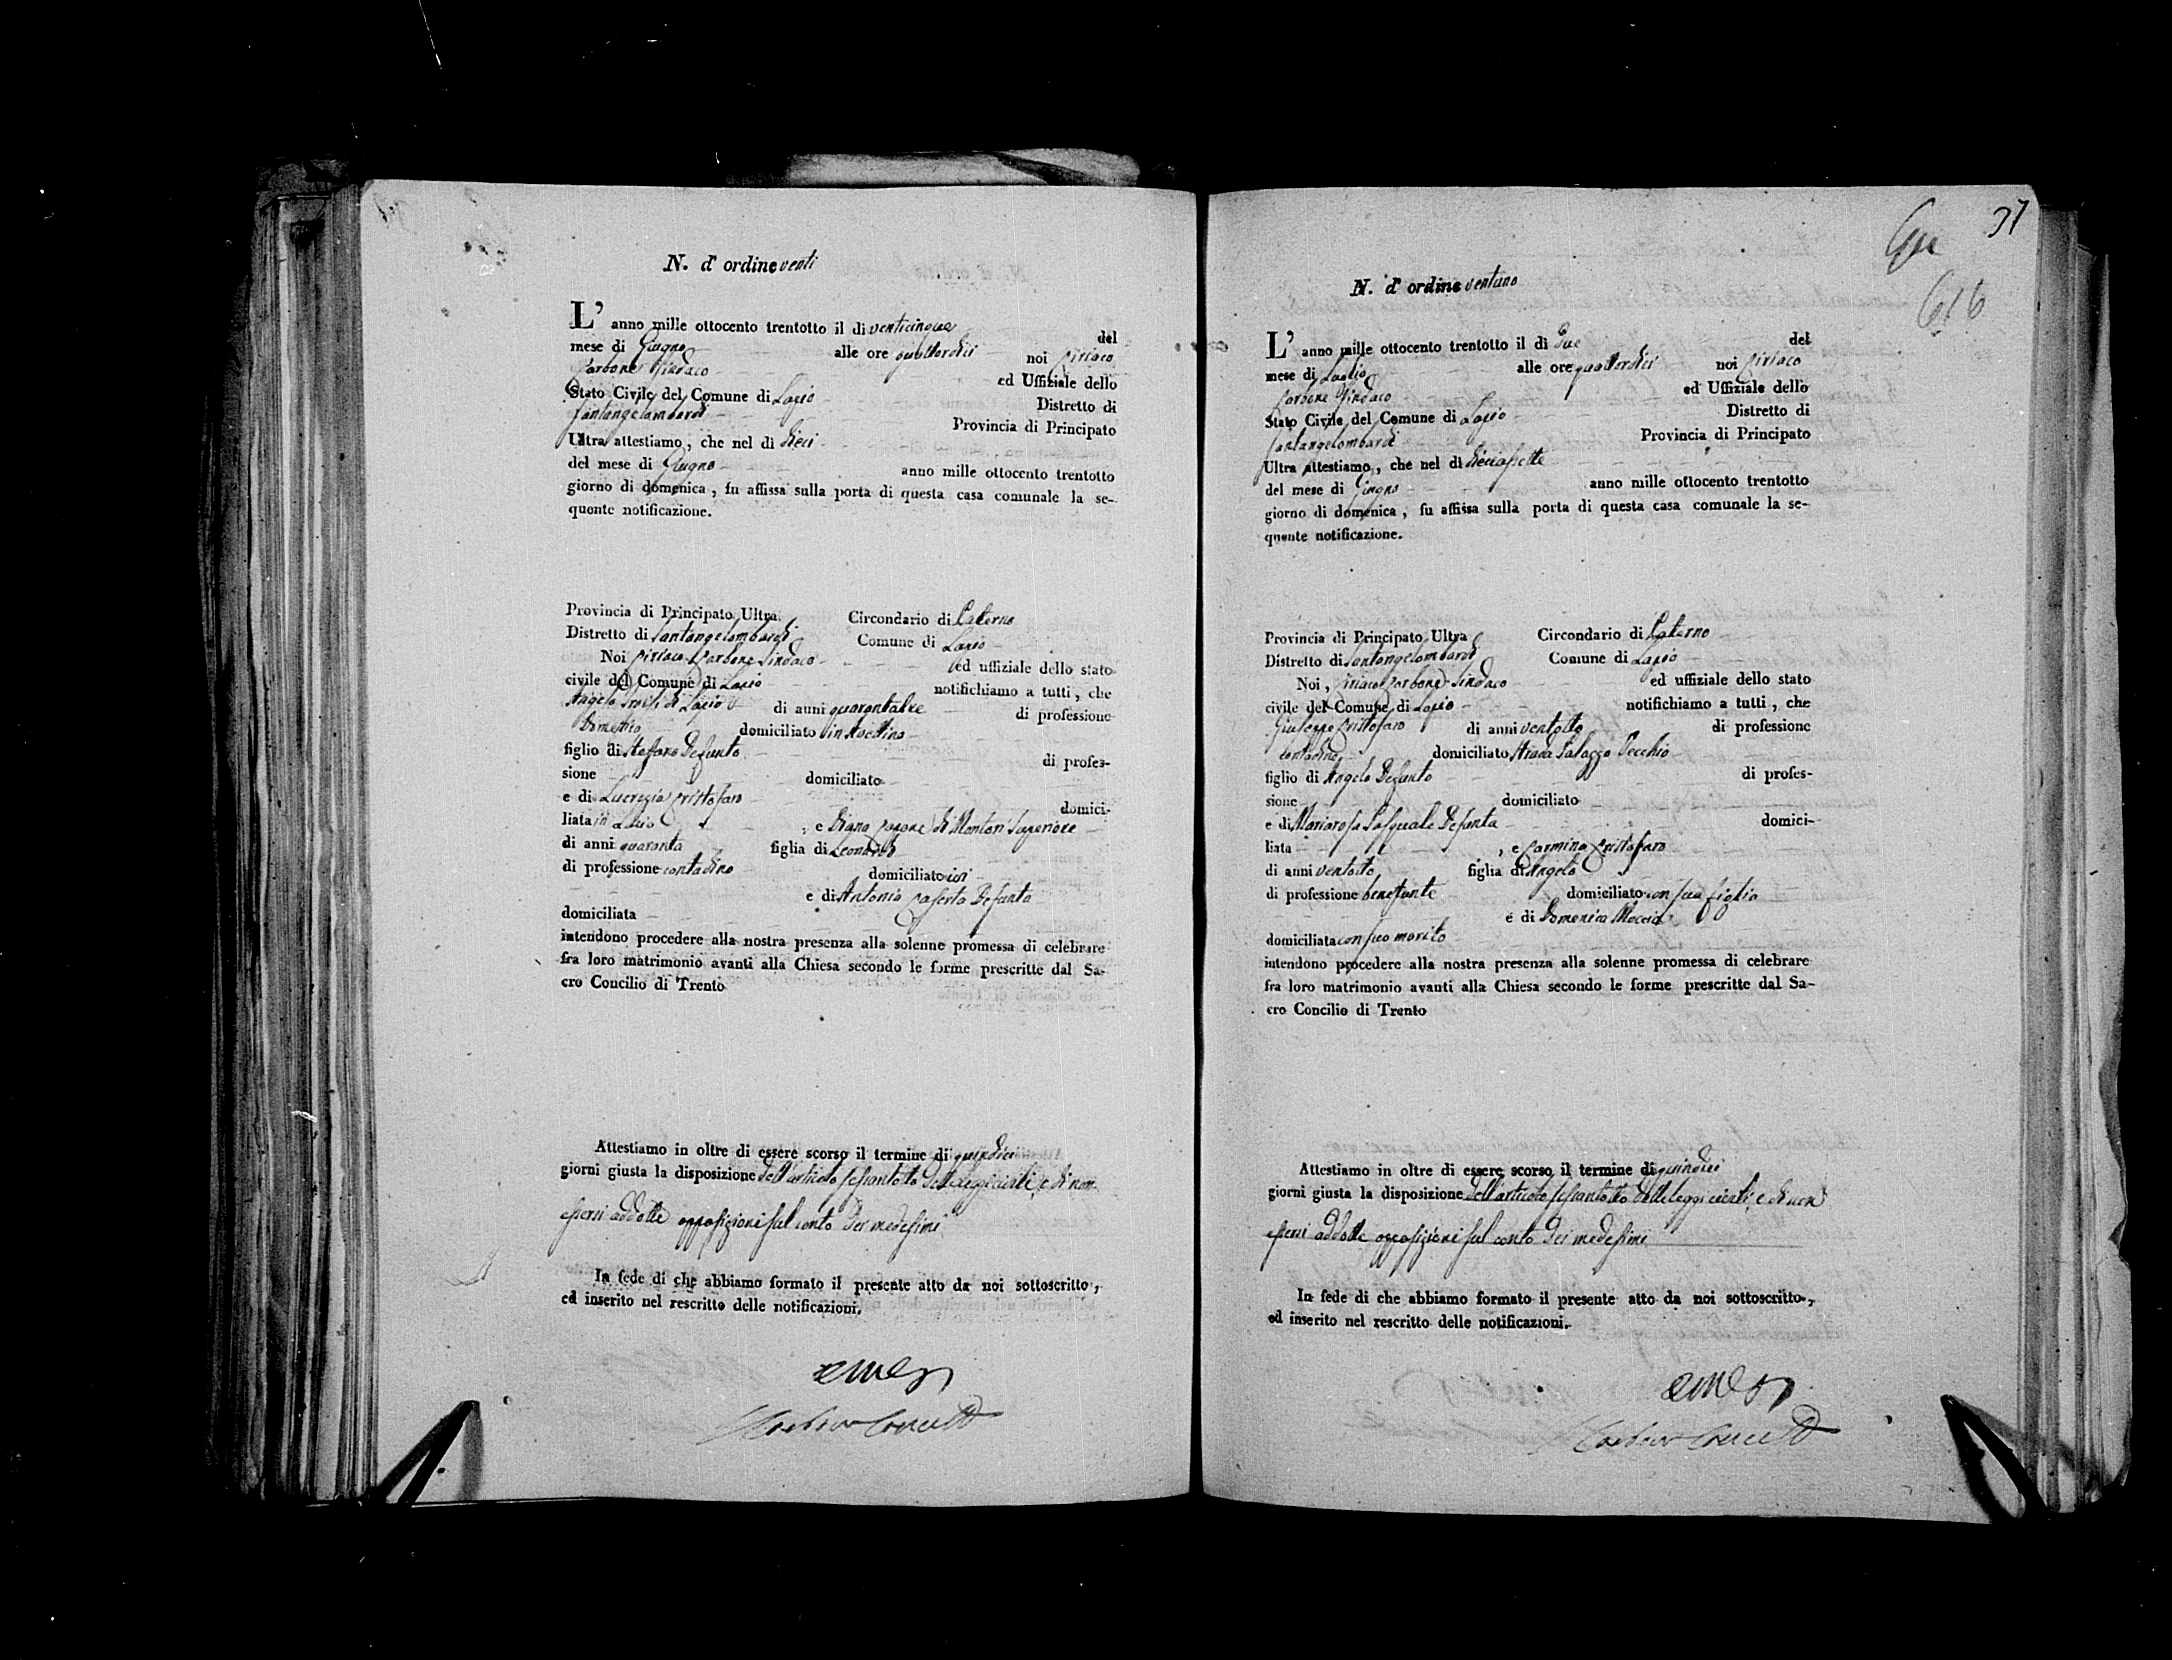 N. d' ordine venti
L' anno mille ottocento trentotto il di venticinque del
mese di Giugno alle ore quattordici noi Ciriaco
Carbone Sindaco ed Uffiziale dello
Stato Civile del Comune di Lapio Distretto di
Santangelombardi Provincia di Principato
Ultra attestiamo, che nel dì dieci
del mese di Giugno anno mille ottocento trentotto
giorno di domenica, fu affissa sulla porta di questa casa comunale la se-
quente notificazione.
Provincia di Principato Ultra Circondario di Paterno
Distretto di Santangelombardi Comune di Lapio
Noi Ciriaco Carbone Sindaco ed uffiziale dello stato
civile del Comune di Lapio notifichiamo a tutti, che
Angelo di Lapio di anni quarantatre di professione
Domestico domiciliato in Avellino
figlio di Stefano Defunto di profes-
sione domiciliato
e di Lucrezia Cristofaro domici-
liata in Lapio, e Diana Capone di Montori Superiore
di anni quaranta figlia di Leonardo
di professione contadino domiciliato ivi
e di Antonia Caserta Defunta
domiciliata
intendono procedere alla nostra presenza alla solenne promessa di celebrare
fra loro matrimonio avanti alla Chiesa secondo le forme prescritte dal Sa-
cro Concilio di Trento
Attestiamo in oltre di essere scorso il termine di quindici
giorni giusta la disposizione dell'articolo sessantotto delle leggi civili, e di non
essersi addotte opposizioni sul conto dei medesimi
In fede di che abbiamo formato il presente atto da noi sottoscritto,
ed inserito nel rescritto delle notificazioni.
37
616
N. d' ordine ventuno
L' anno mille ottocento trentotto il dì due del
mese di Luglio alle ore quattordici noi Ciriaco
Carbone Sindaco ed Uffiziale dello
Stato Civile del Comune di Lapio Distretto di
Santangelombardi Provincia di Principato
Ultra attestiamo, che nel dì diciassette
del mese di Giugno anno mille ottocento trentotto
giorno di domenica, fu affissa sulla porta di questa casa comunale la se-
quente notificazione.
Provincia di Principato Ultra Circondario di Paterno
Distretto di Santangelombardi Comune di Lapio
Noi, Ciriaco Carbone Sindaco ed uffiziale dello stato
civile del Comune di Lapio notifichiamo a tutti, che
Giuseppe Cristofaro di anni ventotto di professione
contadino domiciliato Strada Palazzo Vecchio
figlio di Angelo Defunto di profes-
sione domiciliato
e di Mariarosa Pasquale Defunta domici-
liata, e Carmina Cristofaro
di anni ventotto figlia di Angelo
di professione benestante domiciliato con sua figlia
e di Domenica Moccia
domiciliata con suo marito
intendono procedere alla nostra presenza alla solenne promessa di celebrare
fra loro matrimonio avanti alla Chiesa secondo le forme prescritte dal Sa-
cro Concilio di Trento
Attestiamo in oltre di essere scorso il termine di quindici
giorni giusta la disposizione dell'articolo sessantotto delle leggi civili, e di non
essersi addotte opposizioni sul conto dei medesimi
In fede di che abbiamo formato il presente atto da noi sottoscritto,
ed inserito nel rescritto delle notificazioni.